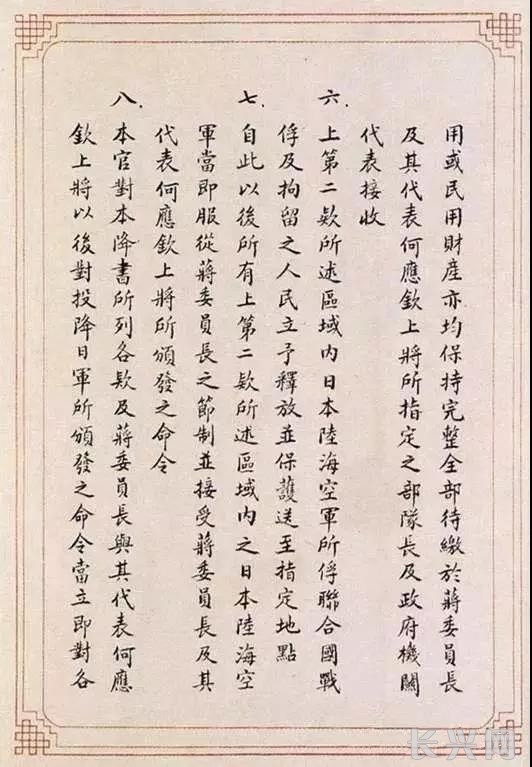 用或民用財產亦均保持完整全部待繳於蔣委員長
及其代表何應欽上將所指定之部隊長及政府機關
代表接收
六.上第二欵所述區域內日本陸海空軍所俘聯合國戰
俘及拘留之人民立予釋放並保護送至指定地點
七.自此以後所有上第二欵所述區域內之日本陸海空
軍當即服從蔣委員長之節制並接受蔣委員長及其
代表何應欽上將所頒發之命令
八.本官對本降書所列各欵及蔣委員長與其代表何應
欽上將以後對投降日軍所頒發之命令當立即對各
长兴网